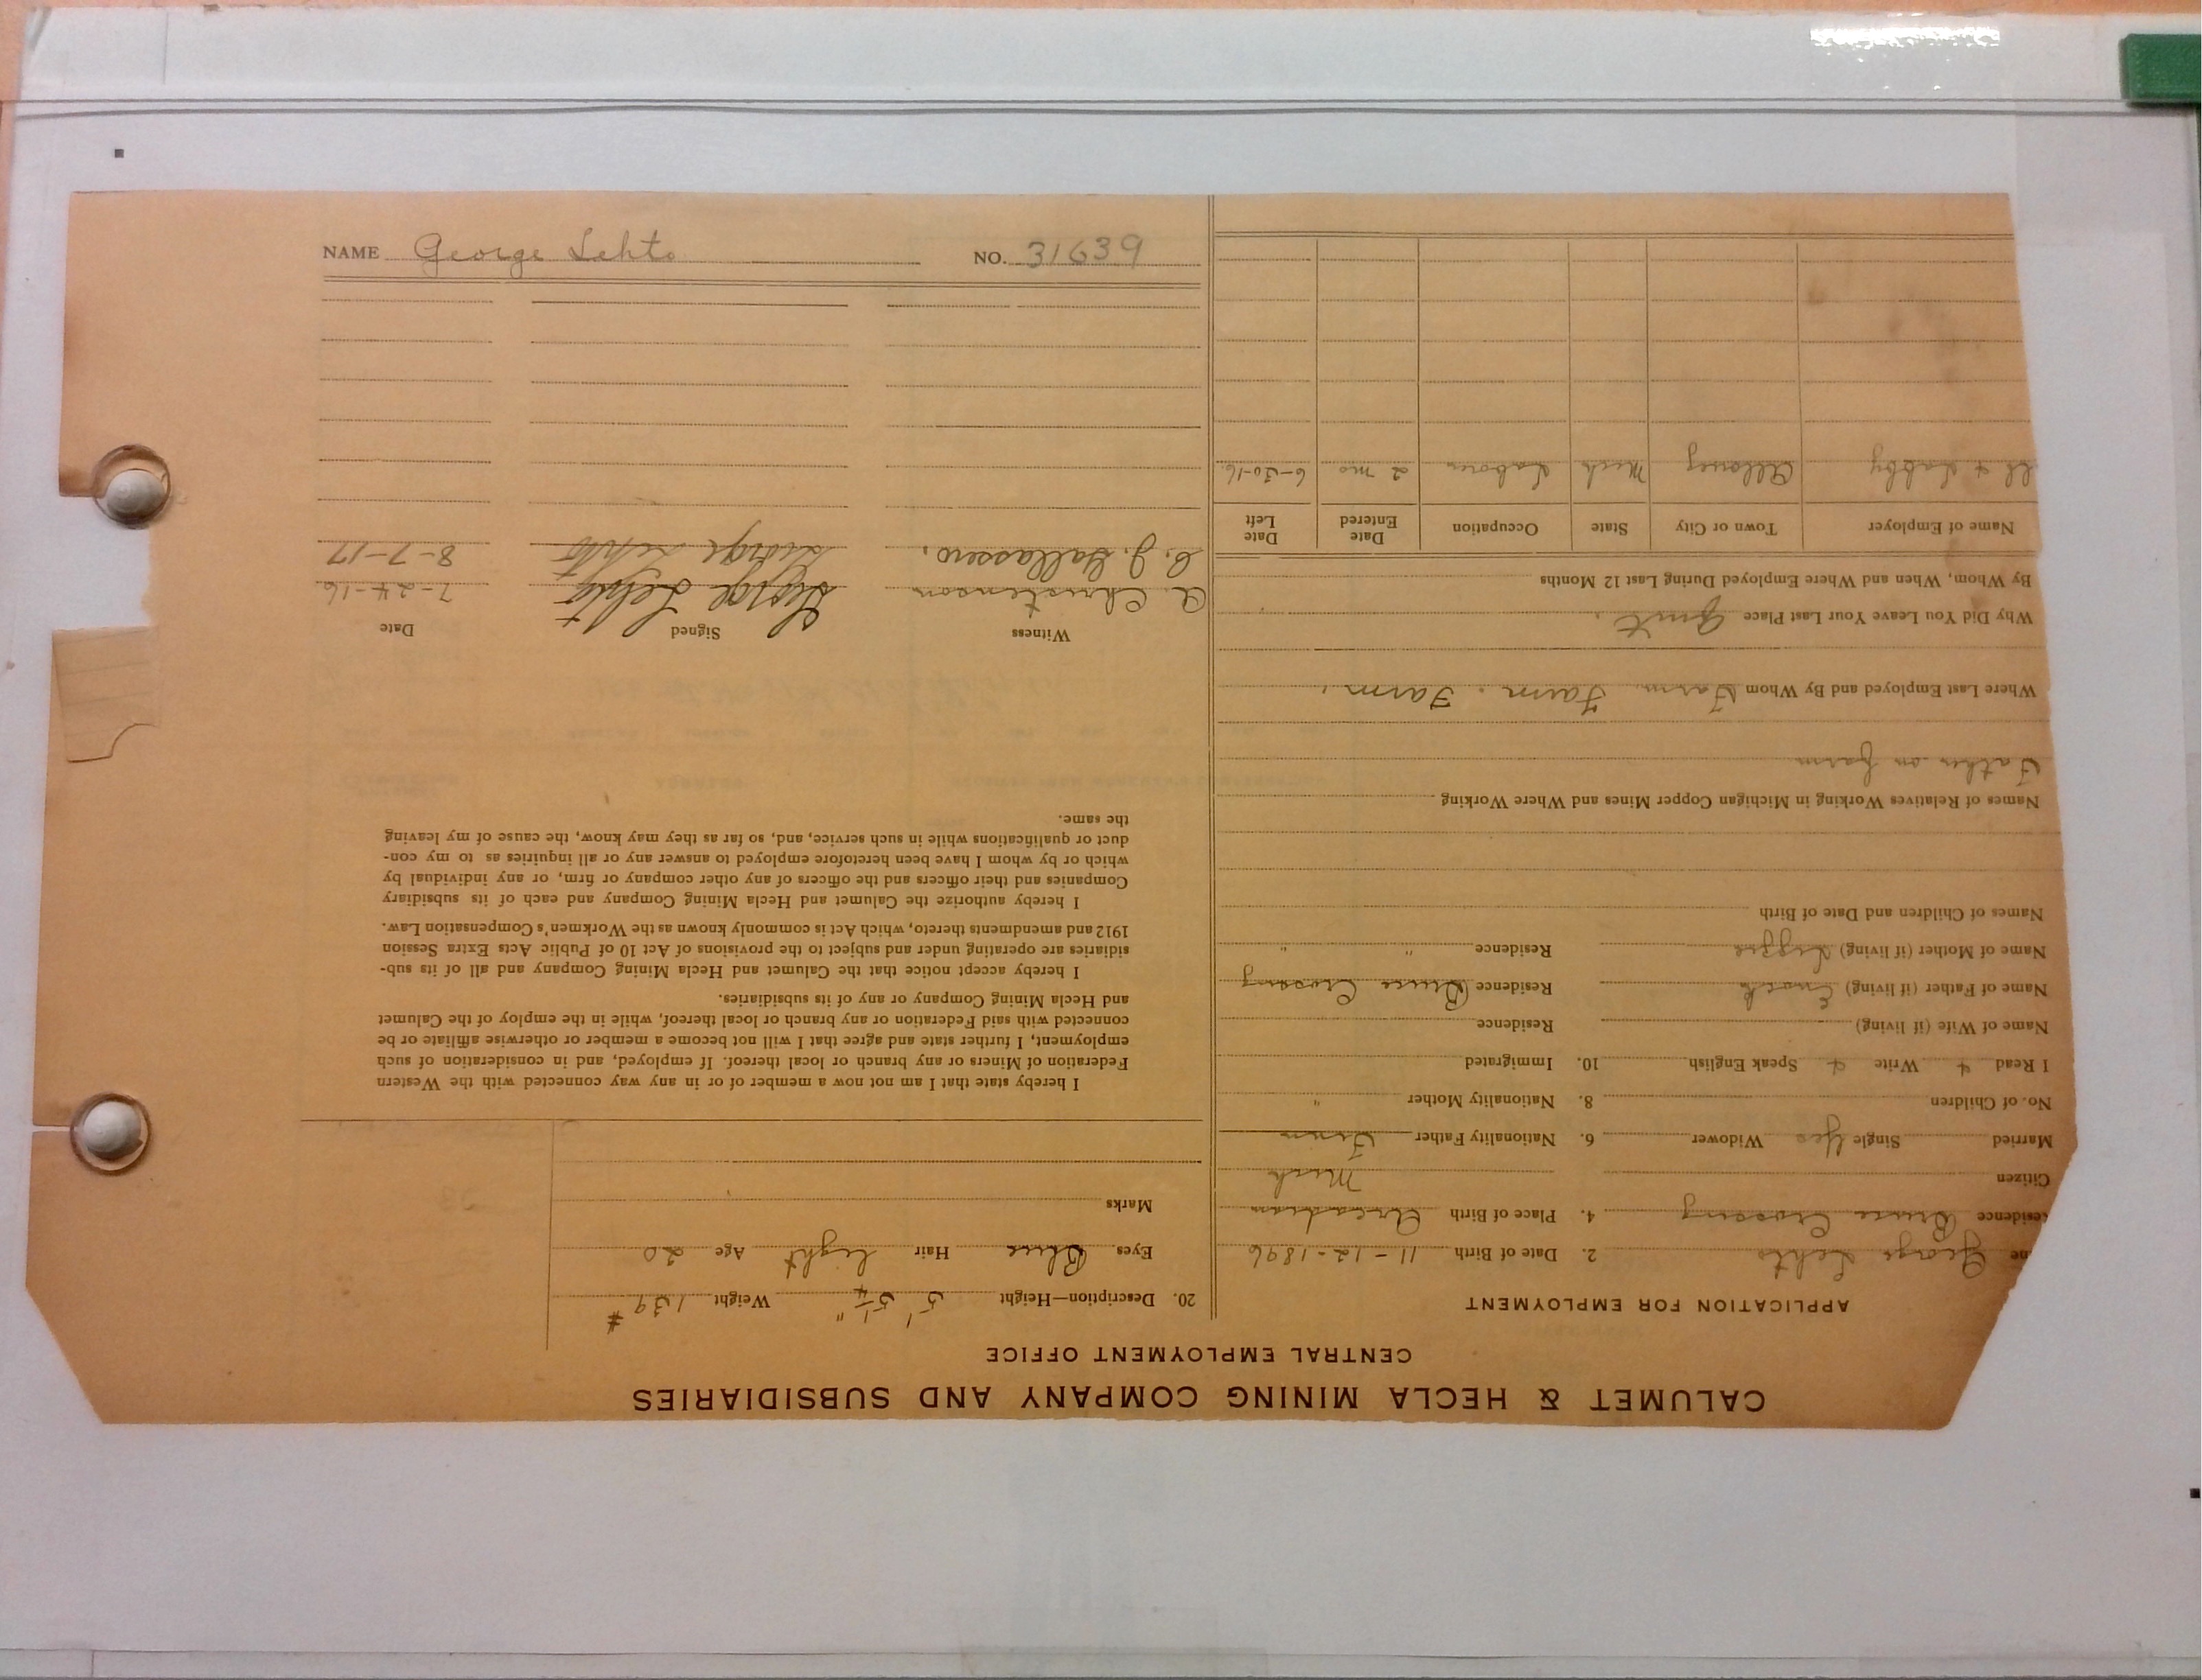 NAME George Lehto NO. 31639
CALUMET & HECLA MINING COMPANY AND SUBSIDIARIES
CENTRAL EMPLOYMENT OFFICE
APPLICATION FOR EMPLOYMENT
George Lehto 2. Date of Birth 11-12-1896
Residence Bruce Crossing 4. Place of Birth
Citizen Mich
Married Single Yes Widower 6. Nationality Father Finn
No. of Children 8. Nationality Mother "
I Read Write Speak English 10. Immigrated
Name of Wife (if living) Residence
Name of Father (if living) Enoch Residence Bruce Crossing
Name of Mother (if living) Lizzie Residence " "
Names of Children and Date of Birth
Names of Relatives Working in Michigan Copper Mines and Where Working
Father on farm
Where Last Employed and By Whom Farm. Farm. Farm.
Why Did You Leave Your Last Place Quit.
By Whom, When and Where Employed During Last 12 Months
Name of Employer Town or City State Occupation Date Entered Date Left
Mich Laborer 2 mo 6-30-16
20. Description—Height 5' 5 1/4" Weight 139#
Eyes Blue Hair light Age 20
Marks
I hereby state that I am not now a member of or in any way connected with the Western
Federation of Miners or any branch or local thereof. If employed, and in consideration of such
employment, I further state and agree that I will not become a member or otherwise affiliate or be
connected with said Federation or any branch or local thereof, while in the employ of the Calumet
and Hecla Mining Company or any of its subsidiaries.
I hereby accept notice that the Calumet and Hecla Mining Company and all of its sub-
sidiaries are operating under and subject to the provisions of Act 10 of Public Acts Extra Session
1912 and amendments thereto, which Act is commonly known as the Workmen's Compensation Law.
I hereby authorize the Calumet and Hecla Mining Company and each of its subsidiary
Companies and their officers and the officers of any other company or firm, or any individual by
which or by whom I have been heretofore employed to answer any or all inquiries as to my con-
duct or qualifications while in such service, and, so far as they may know, the cause of my leaving
the same.
Witness Signed Date
A. Christenson George Lehto 7-24-16
C. J. Gallassero. George Lehto 8-7-17